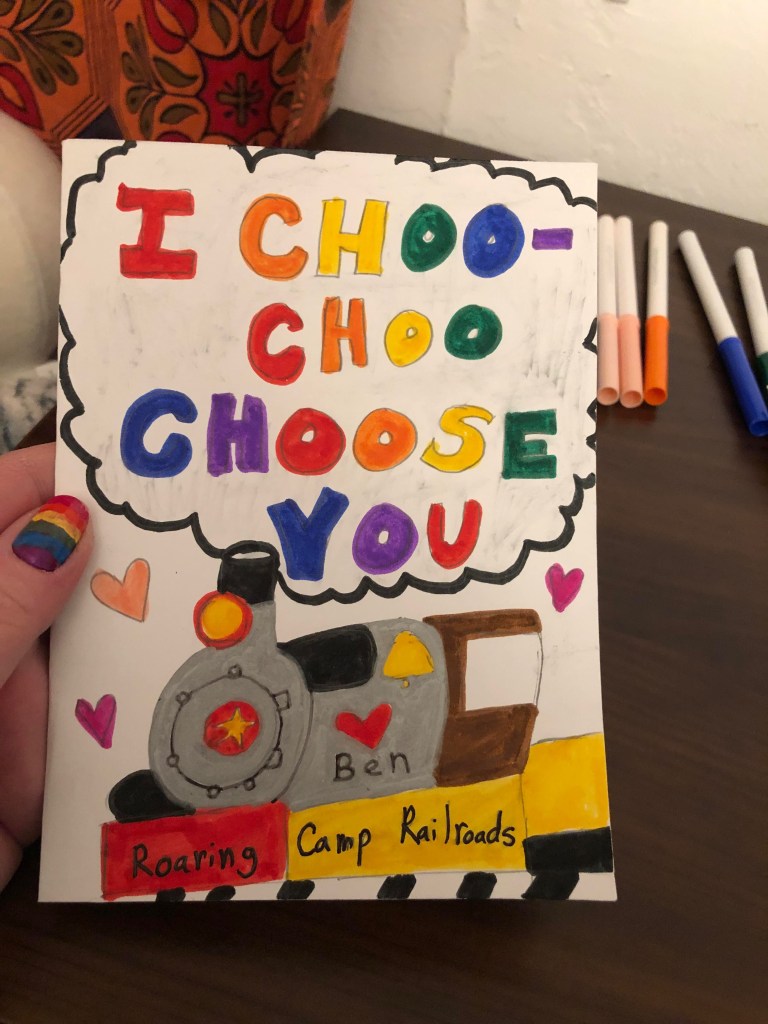 I CHOO-
CHOO
CHOOSE
YOU
Ben
Roaring Camp Railroads